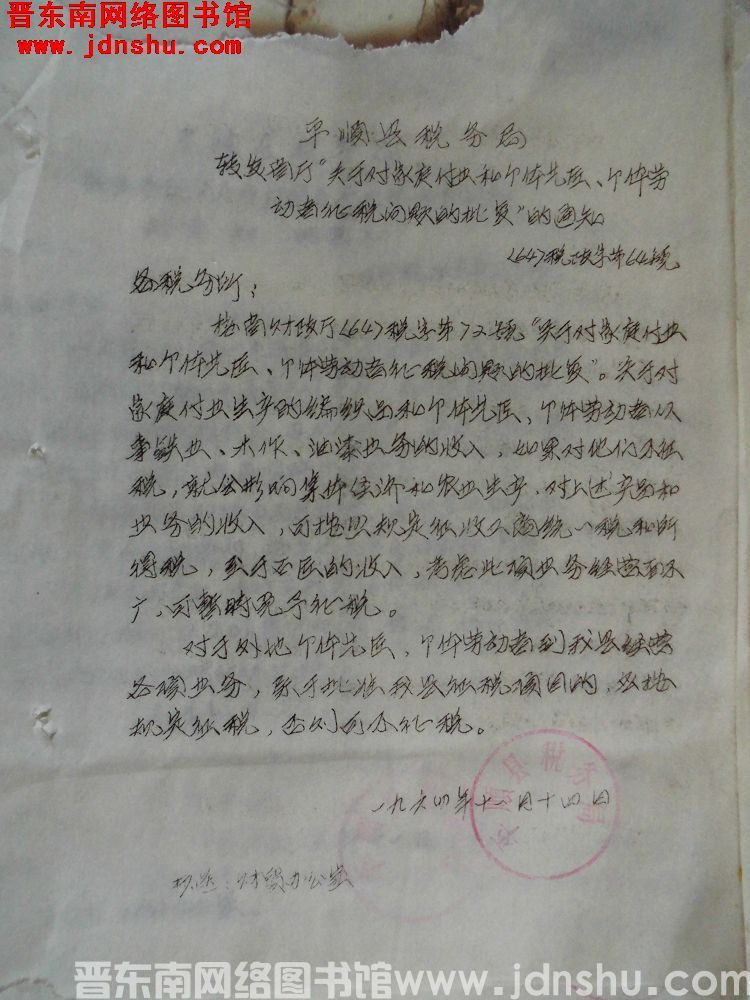 晋东南网络图书馆
www.jdnshu.com
平顺县税务局
转发省厅“关于对家庭付业和个体先匠、个体劳
动者征税问题的批复”的通知
(64)税政字第64号
各税务所:
接省财政厅(64)税字第72号“关于对家庭付业
和个体先匠、个体劳动者征税问题的批复”。关于对
家庭付业生产的编织品和个体先匠、个体劳动者从
事铁业、木作、油漆业务的收入,如果对他们不征
税,就会影响集体经济和农业生产,对上述产品和
业务的收入,可按照规定征收工商统一税和所
得税,至于石匠的收入,考虑此项业务经营面不
广,可暂时免予征税。
对于外地个体先匠,个体劳动者到我县经营
各项业务,属于批准我县征税项目的,应按
规定征税,否则可不征税。
一九六四年十一月十四日
平顺县税务局
抄送:财贸办公室
晋东南网络图书馆www.jdnshu.com